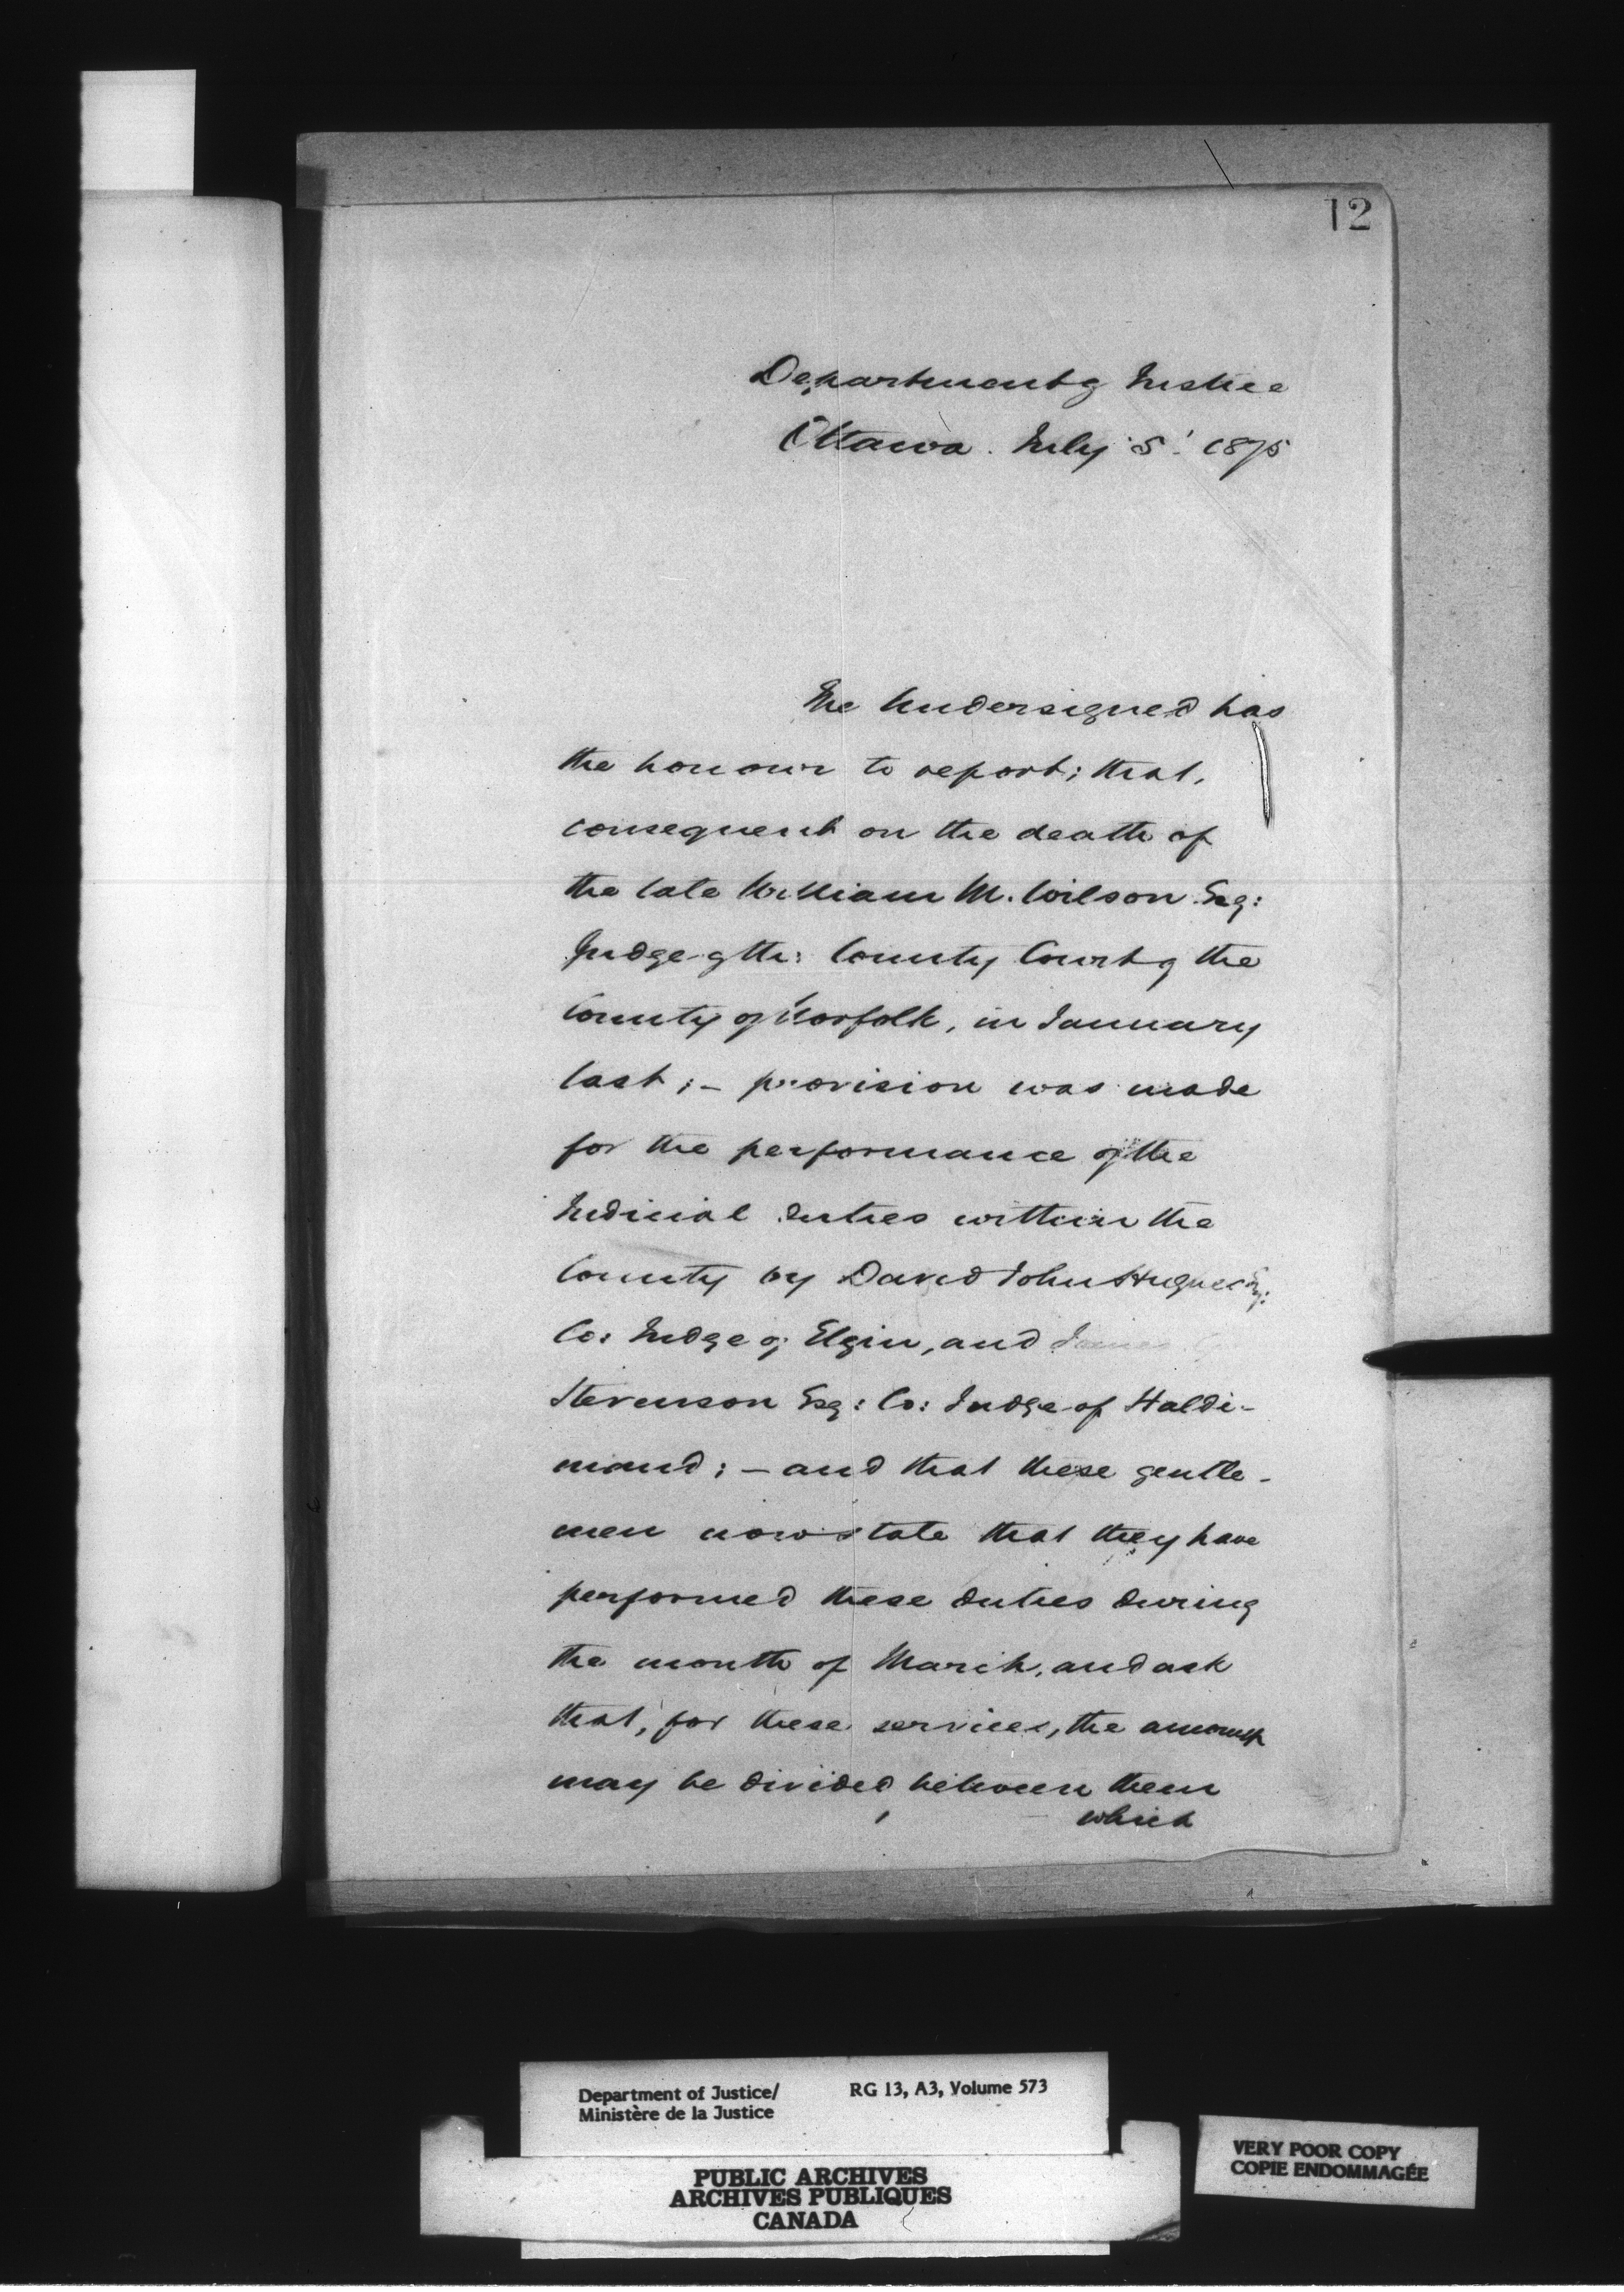 12
Department of Justice
Ottawa. July 5' 1875
The Undersigned has
the honour to report; that,
consequent on the death of
the late William M. Wilson Esq:
Judge of the County Court of the
County of Norfolk, in January
last; - provision was made
for the performance of the
Judicial duties within the
County by David John Hughes Esq:
Co: Judge of Elgin, and James
Stevenson Esq: Co: Judge of Haldi-
mand; - and that these gentle-
men now state that they have
performed these duties during
the month of March, and ask
that, for these services, the amount
may be divided between them
which
Department of Justice/
Ministère de la Justice
RG 13, A3, Volume 573
PUBLIC ARCHIVES
ARCHIVES PUBLIQUES
CANADA
VERY POOR COPY
COPIE ENDOMMAGÉE